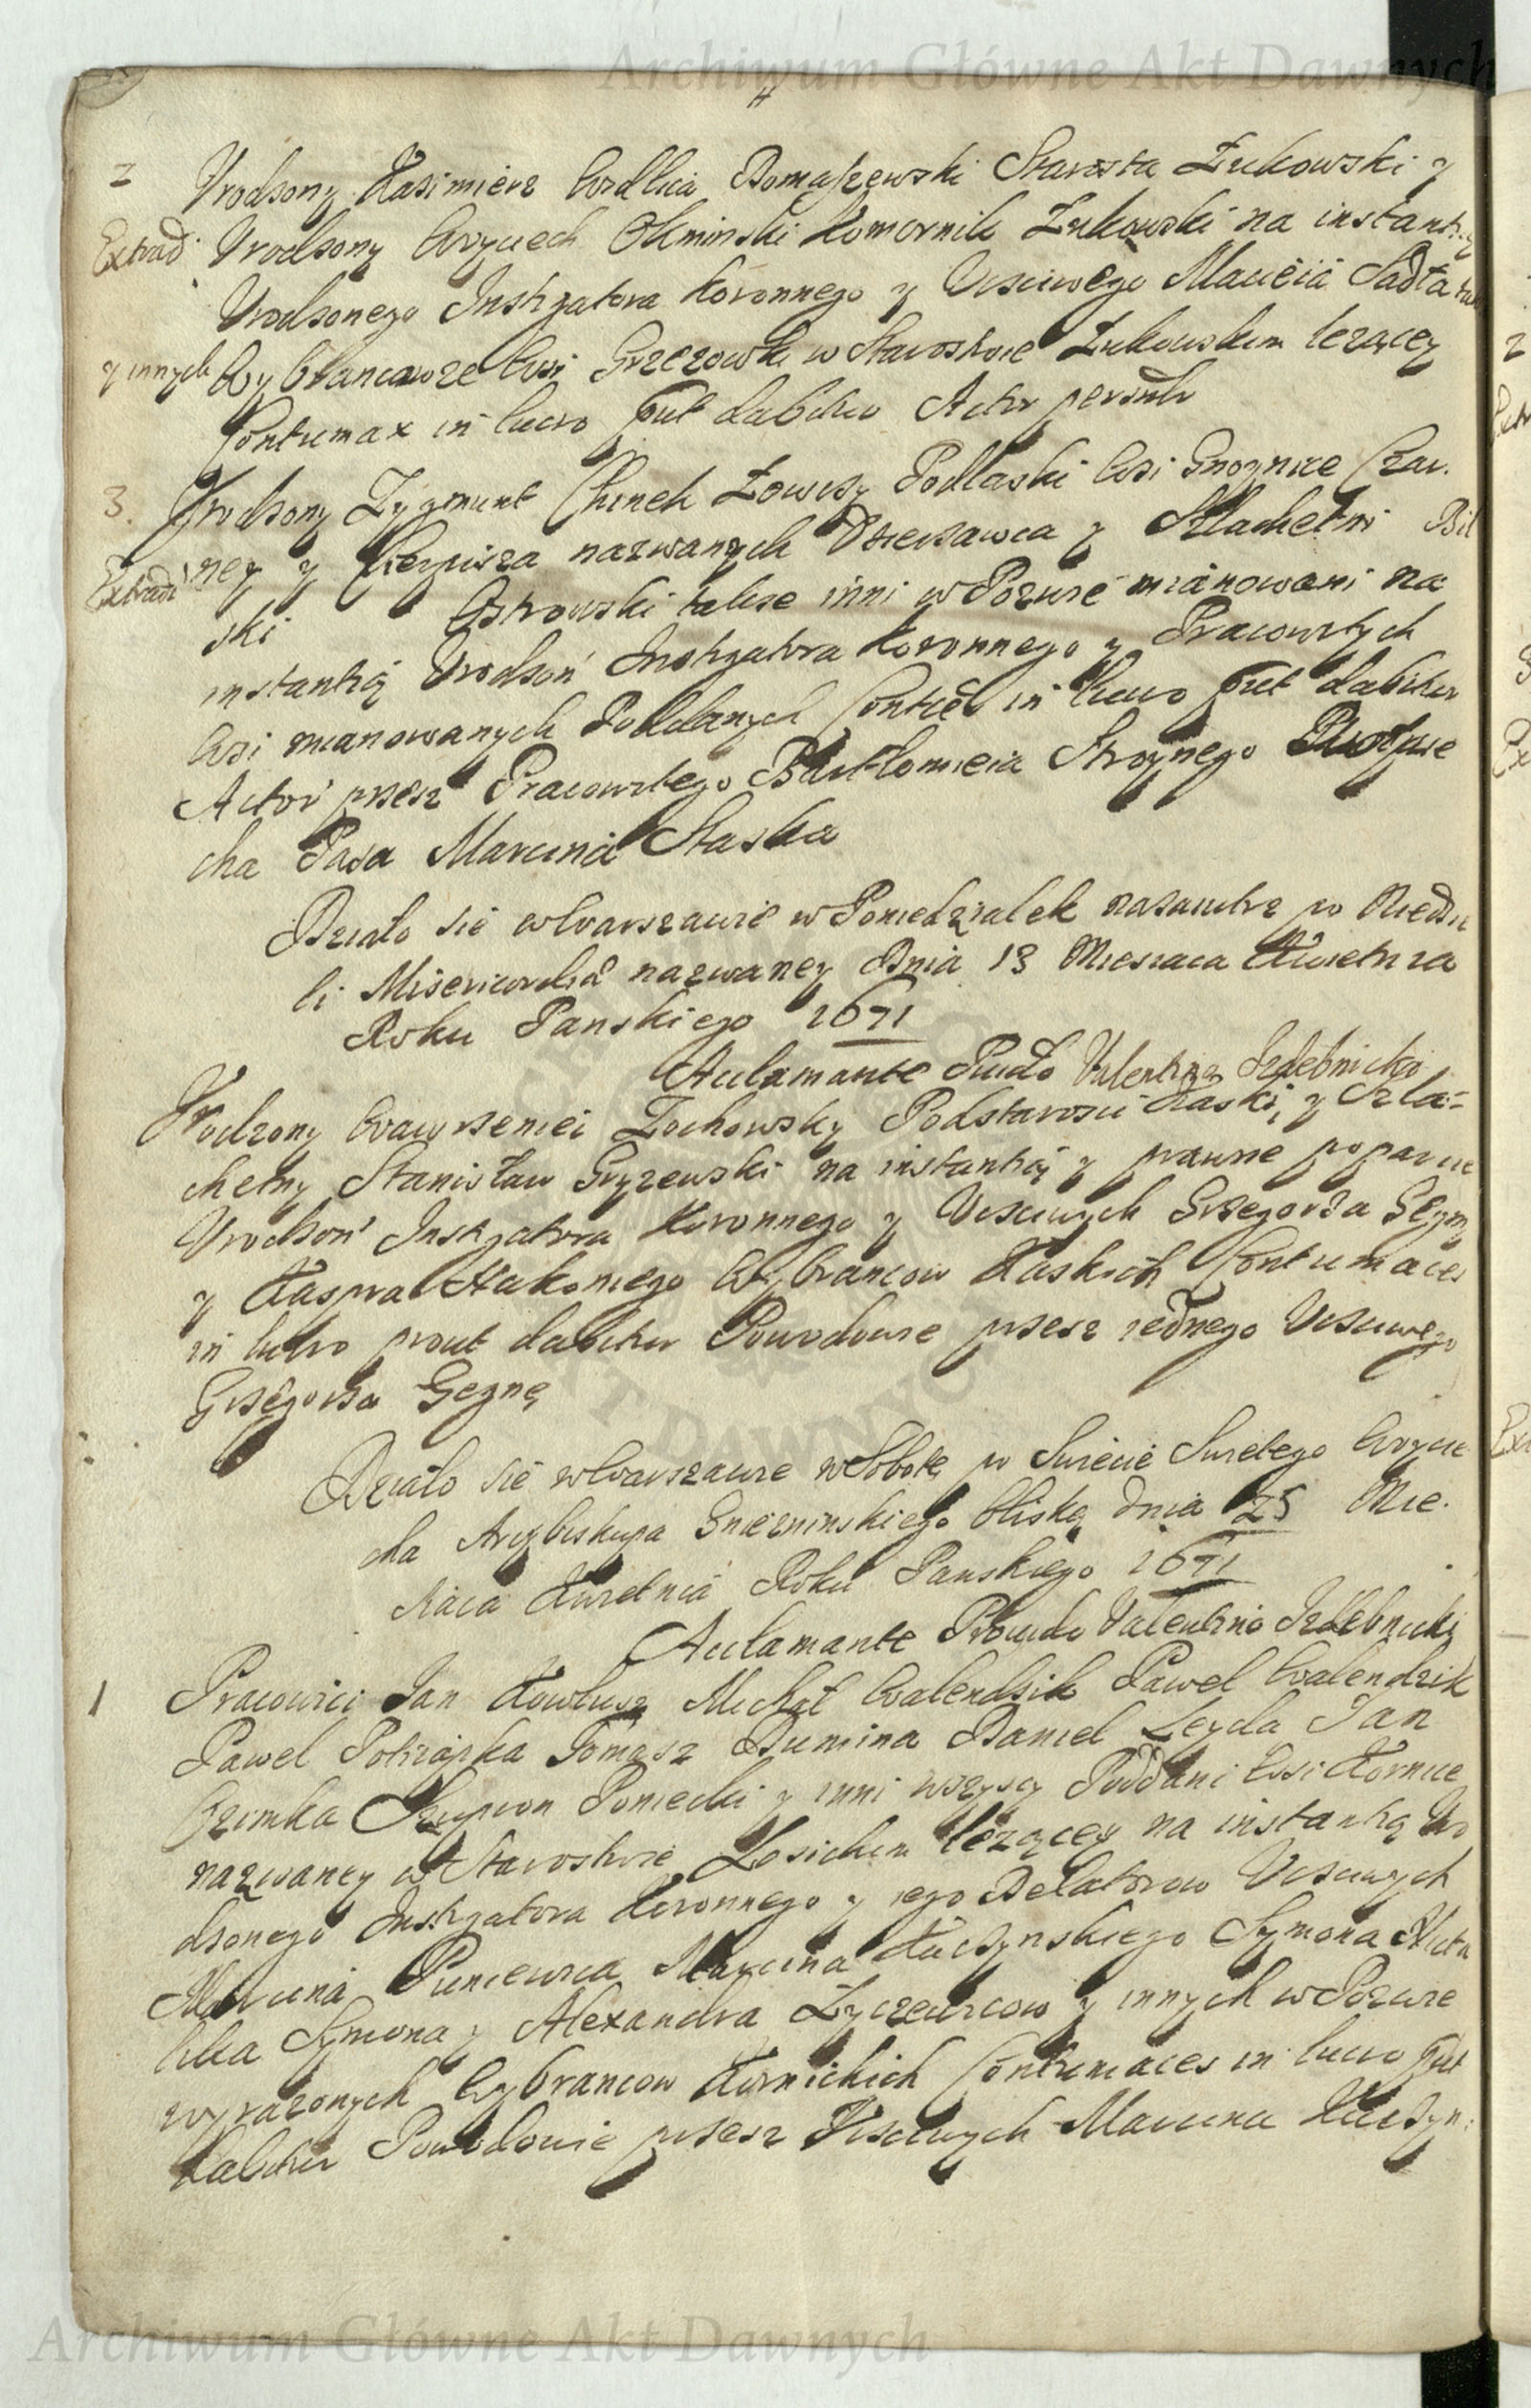 Archiwum Główne Akt Dawnych
2 Urodzony Kazimierz Domaszewski Starosta Łukowski y
Extrad Urodzony Woyciech Okninski Komornik Łukowski na instantią
Urodzonego Instigatora Koronnego y Uczciwego Macieia Sadła
y innych Wybrancow ze Wsi Grzezowki w Starostwie Łukowskim lezącey
Contumax in lucro put dabitur Actor personlr
3. Urodzony Zygmunt Chinek Łowczy Podlaski Wsi Gnoynice Czar
Extrad ney y nazwanych Dzierzawca y Szlachetni
ski Ostrowski takze inni w Pozwie mianowani na
instantią Urodzon Instigatora Koronnego y Pracowitych
Wsi mianowanych Poddanych Contces in lucro put dabitur
Actor przez Pracowitego Bartłomieia Stroynego
cha Pasa Marcina Staska
Działo się w Warszawie w Poniedziałek nazaiutrz po Niedzie
li Misericordia nazwaney Dnia 13 Miesiaca Kwietnia
Roku Panskiego 1671
Acclamante Pudo Valentino Izdebnicki
Urodzony Wawrzeniec Zochowsky Podstarosci Łaski, y Szla=
chetny Stanisław Gryzewski na instantią y prawne poparcie
Urodzon Instigatora Koronnego y Uczciwych Grzegorza
y Kaspra Wybrancow Contumaces
in lucro prout dabitur Powodowie przez iednego Uczciwego
Grzegorza
Działo się w Warszawie w Sobotę po Swięcie Swiętego Woycie
cha Arcybiskupa Gniezninskiego bliską dnia 25 Mie
siaca Kwietnia Roku Panskiego 1671
Acclamante Provido Valentino Izdebnicki
1 Pracowici Jan Michał Walendzik Paweł Walendzik
Paweł Tomasz Dumina Daniel Leyda Jan
Szczpion Poniecki y inni wszyscy Poddani Wsi Kornice
nazwaney w Starostwie Łosickim lezącey na instantią Uro
dzonego Instigatora Koronnego y iego Delatorow Uczciwych
Marcina Puniewica Marcina Kuczynskiego Symona
Symona y Alexandra Zyczewicow y innych w Pozwie
wyrazonych Wybrancow Kornickich Contumaces in lucro put
dabitur Powodowie przez Uczciwych Marcina Kuczyn:
Archiwum Główne Akt Dawnych